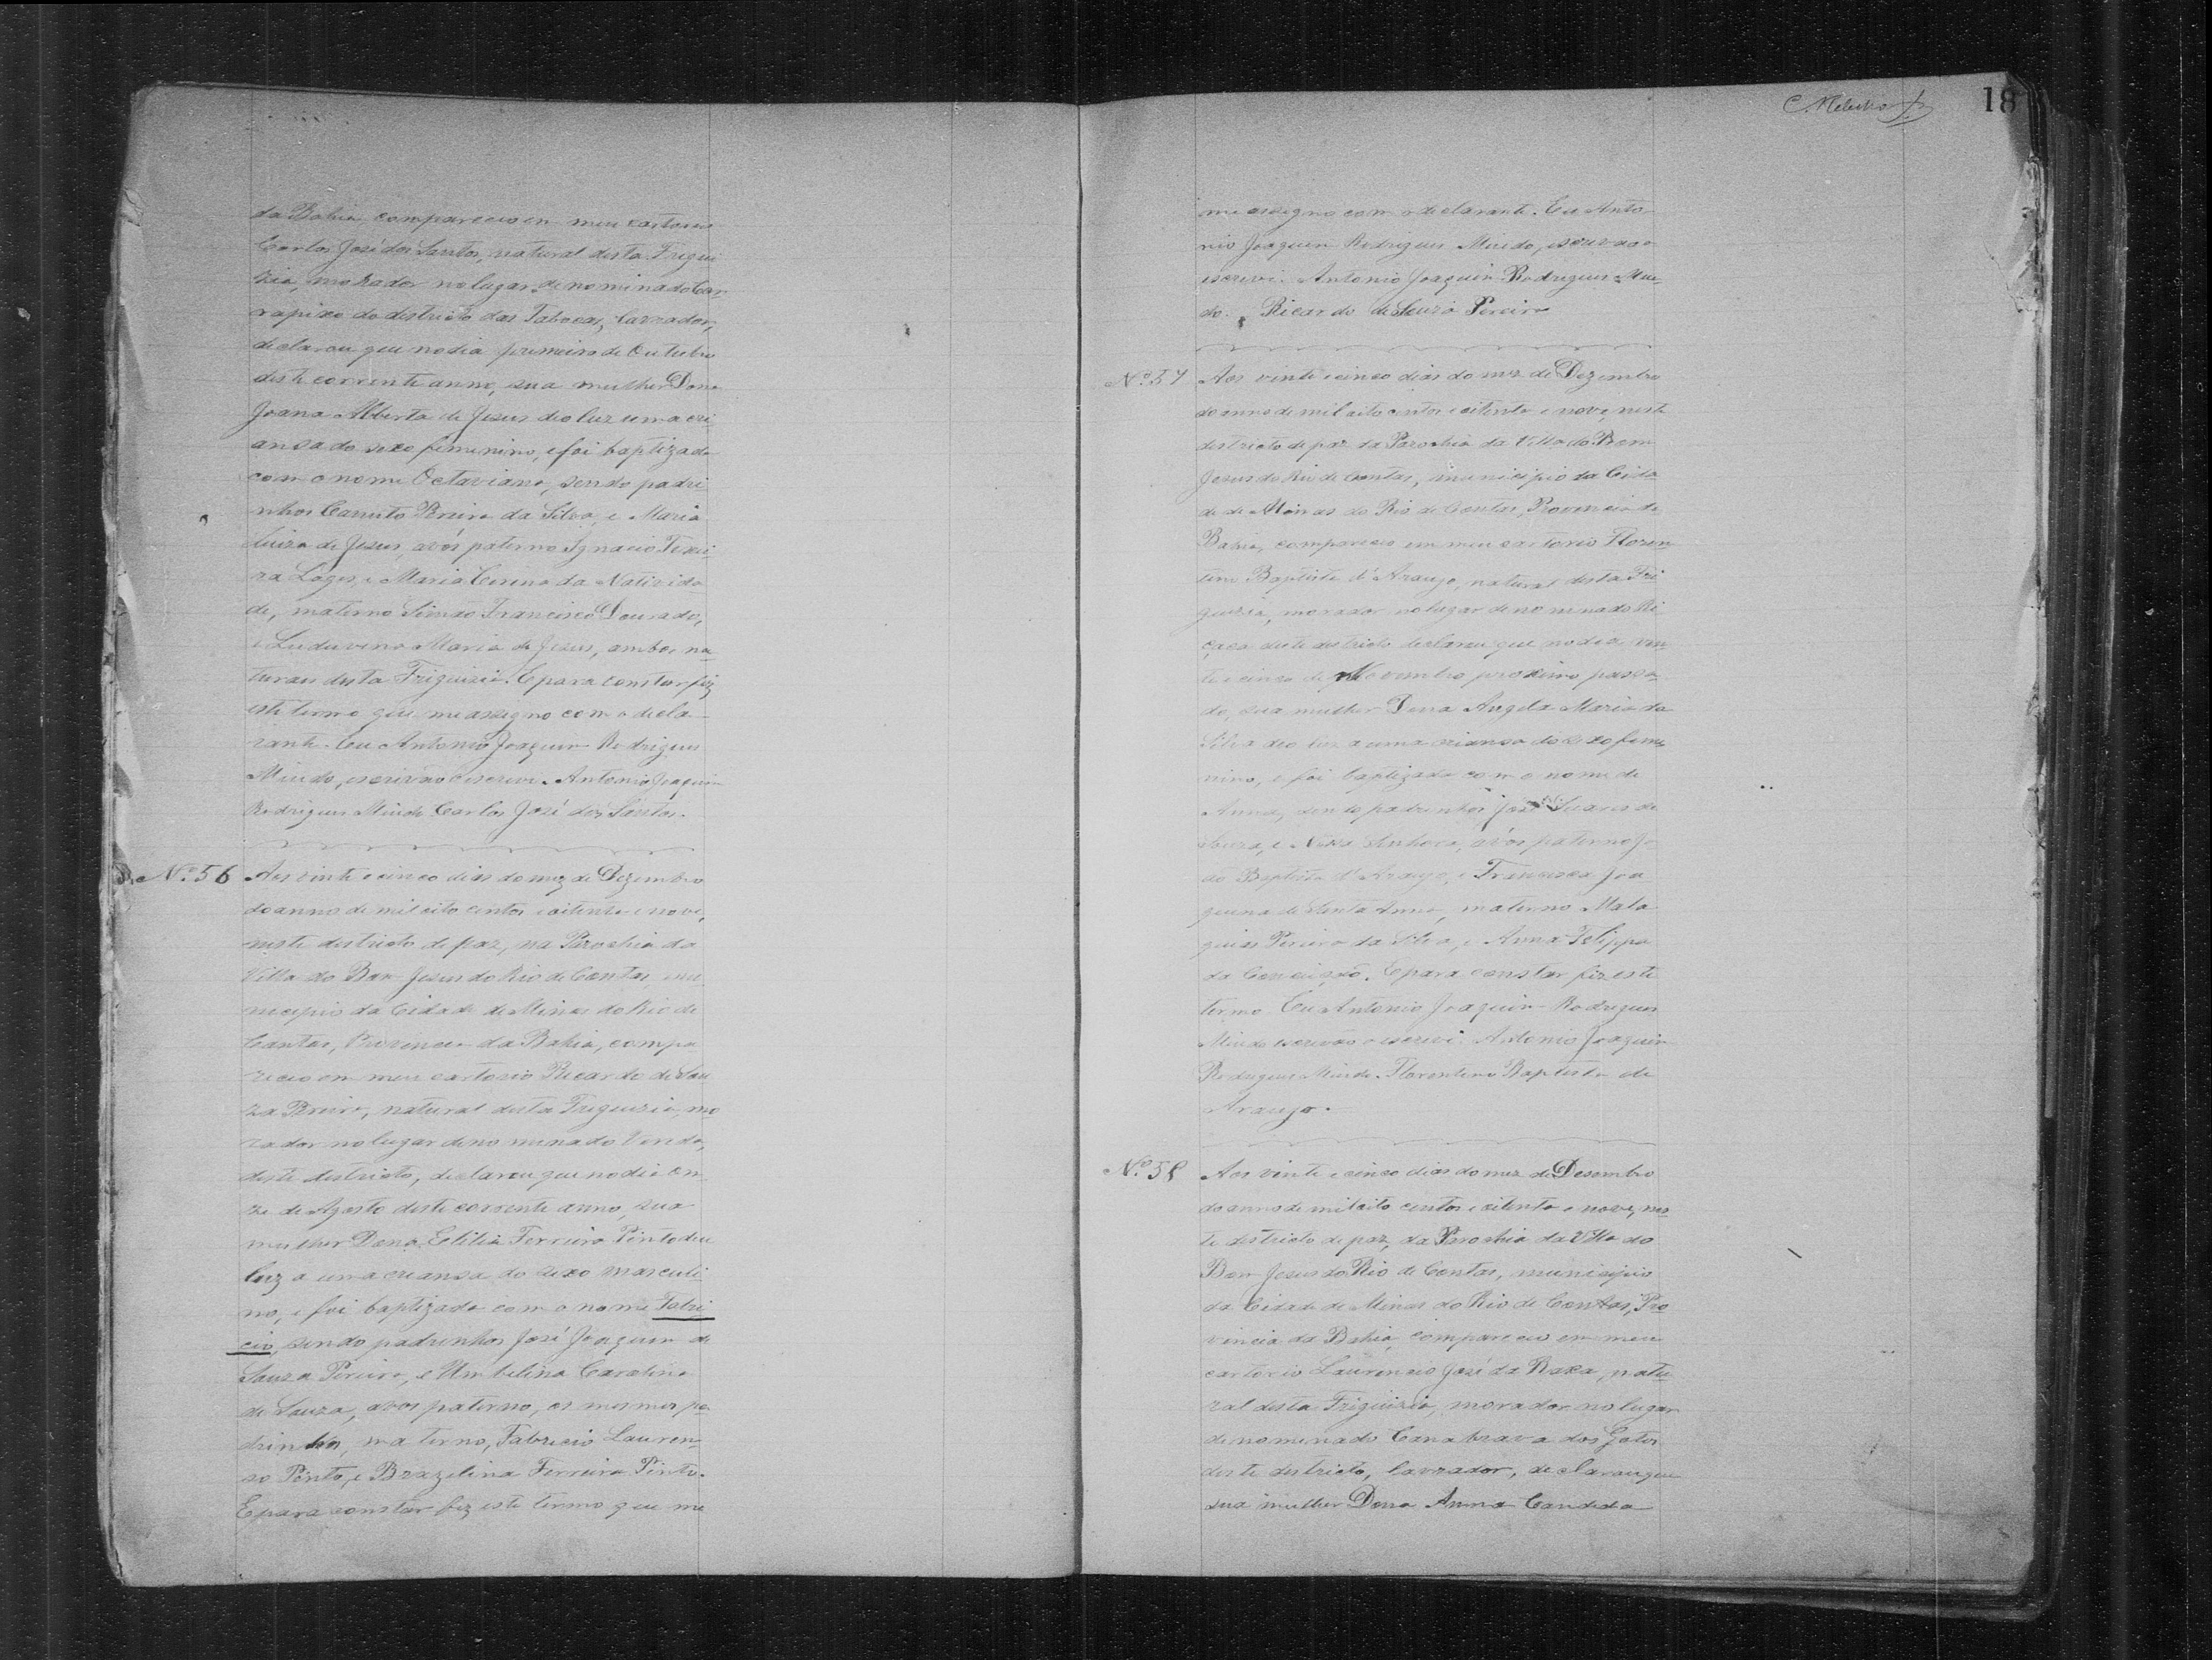 da Bahia compareceo em meu cartorio
Carlos José dos Santos, natural desta Frigui
zia, morador no lugar denominado Car
rapixo do districto das Tabocas, lavrador,
declarou que no dia primeiro de Outubro
deste corrente anno, sua mulher Dona
Joana Alberta de Jesus deo luz uma cri
ansa do sexo feminino, e foi baptizada
com o nome Octaviana, sendo padri
nhos Canuto Pereira da Silva, e Maria
Luiza de Jesus, avós paterno Ignacio Texei
ra Lages, e Maria da Nativida
de, materno Simão Francisco Dourado,
e Luduvina Maria de Jesus, ambos na
turaes desta Friguizia. E para constar fiz
este termo que me assegno com o decla
rante. Eu Antonio Joaquim Rodrigues
Miudo, escrivão o escrevi. Antonio Joaquim
Rodrigues Miudo Carlos José dos Santos.
Nº 56 Aos vinte e cinco dias do mez de Dezembro
do anno de mil oito centos e oitenta e nove,
neste destricto de paz, na Parochia da
Villa do Bom Jesus do Rio de Contas, mu
nicipio da Cidade de Minas do Rio de
Contas, Provincia da Bahia, compa
receo em meu cartorio Ricardo de Sou
za Pereira, natural desta Freguizia, mo
rador no lugar denominado Vereda,
deste destricto, declarou que no dia on
ze de Agosto deste corrente anno, sua
mulher Dona Ferreira Pinto deu
luz a uma criansa do sexo masculi
no, e foi baptizado com o nome Fabri
cio, sendo padrinhos José Joaquim de
Souza Pereira, e Umbelina Carolina
de Souza, avos paterno, os mesmos pa
drinhos, materno, Fabricio Lauren
so Pinto, e Brazilina Ferreira Pinto.
E para constar fiz este termo que me
C. Rebello Jr. 18
me assegno com o declarante. Eu Anto
nio Joaquim Rodrigues Miudo, escrivão o
escrevi. Antonio Joaquim Rodrigues Miu
do. Ricardo de Souza Pereira
Nº 57 Aos vinte e cinco dias do mez de Dezembro
do anno de mil oito centos e oitenta e nove, neste
destricto de paz da Parochia da Villa do Bom
Jesus do Rio de Contas, municipio da Cida
de de Minas do Rio de Contas, Provincia da
Bahia, compareceo em meu cartorio Floren
tino Baptista d'Araujo, natural desta Fri
guizia, morador no lugar denominado Ri
deste destricto declarou que no dia vin
te e cinco de Novembro proximo passa
do, sua mulher Dona Angela Maria da
Silva deo luz a uma criansa do sexo femi
nino, e foi baptizada com o nome de
Anna, sendo padrinhos José Soares de
Souza, e Nossa Senhora, avós paterno Jo
ão Baptista d'Araujo, e Francisca Joa
quina de Santa Anna, materno Mala
quias Pereira da Silva, e Anna Felippa
da Conceição. E para constar fiz este
termo Eu Antonio Joaquim Rodrigues
Miudo escrivão o escrevi. Antonio Joaquim
Rodrigues Miudo. Florentino Baptista de
Araujo.
Nº 58 Aos vinte e cinco dias do mez de Desembro
do anno de mil oito centos e oitenta e nove, nes
te destricto de paz, da Parochia da Villa do
Bom Jesus do Rio de Contas, municipio
da Cidade de Minas do Rio de Contas, Pro
vincia da Bahia, compareceo em meu
cartorio Laurencio José da natu
ral desta Friguizia, morador no lugar
denominado Cana brava dos Gatos
deste destricto, lavrador, declarou que
sua mulher Dona Anna Candida